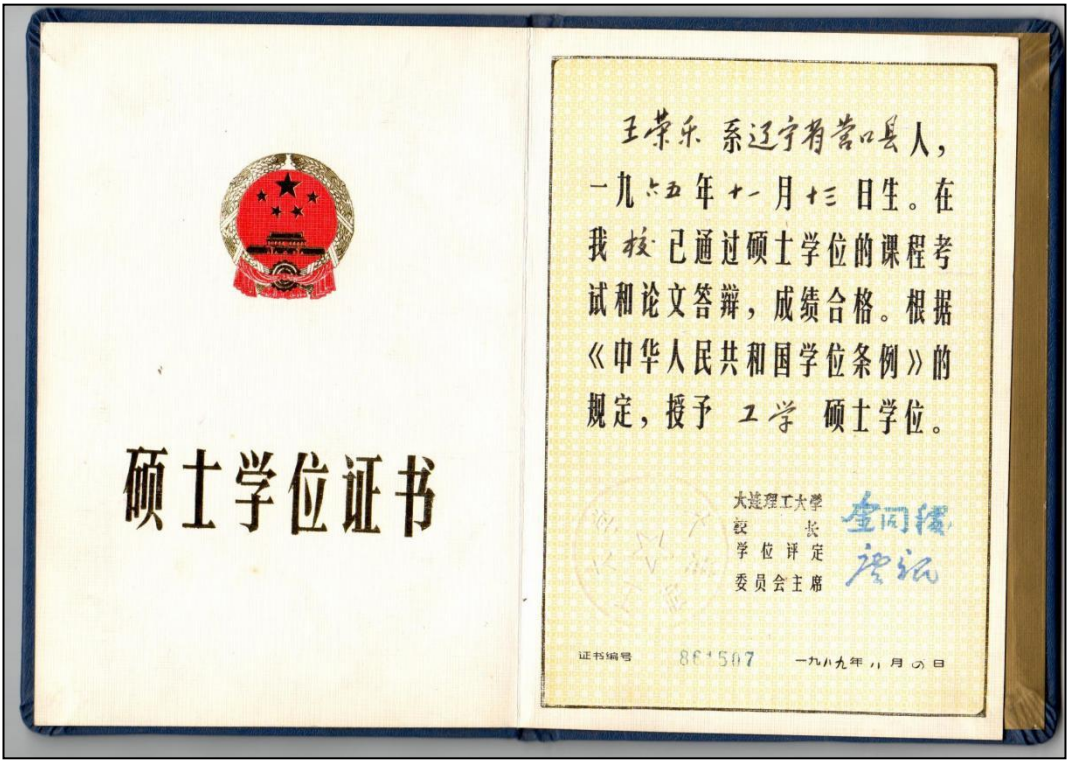 硕士学位证书
王荣乐 系辽宁省营口县人，
一九六五年十一月十三日生。在
我校已通过硕士学位的课程考
试和论文答辩，成绩合格。根据
《中华人民共和国学位条例》的
规定，授予 工学 硕士学位。
大连理工大学
校长
学位评定
委员会主席
证书编号 861507 一九八九年八月四日